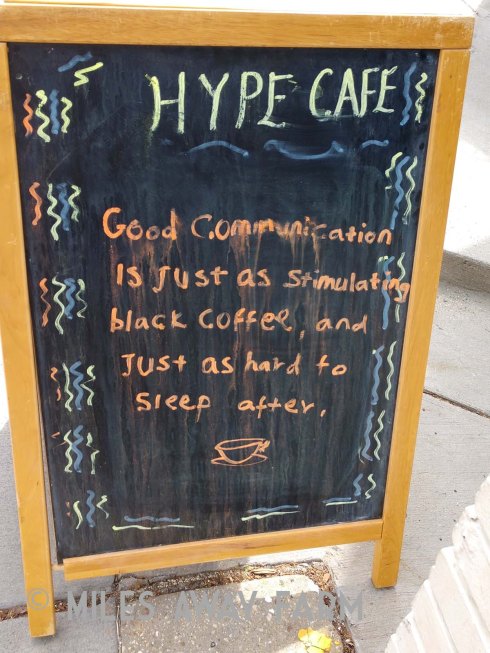 HYPE CAFE
Good Communication
Is Just as stimulating
black coffee, and
Just as hard to
sleep after.
© MILES AWAY FARM